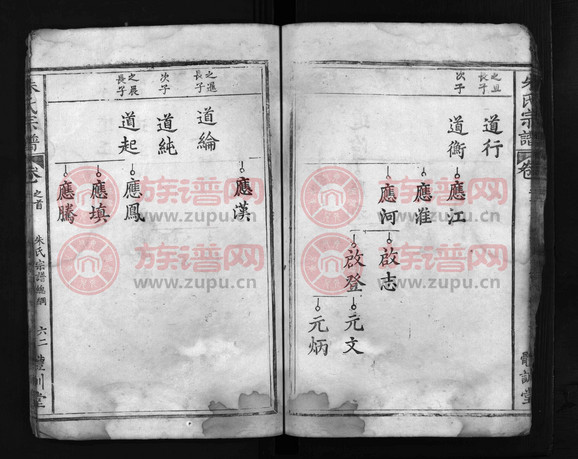 朱氏宗譜
卷
之旦長子
道行
次子
道衡
應江
應淮
應河
啟志
啟登
元文
元炳
應漢
之進長子
道綸
次子
道純
之晨長子
道起
應鳳
應填
應騰
朱氏宗譜
卷之首
朱氏宗譜總綱
六二
族谱网
www.zupu.cn
族谱网
www.zupu.cn
族谱网
www.zupu.cn
族谱网
www.zupu.cn